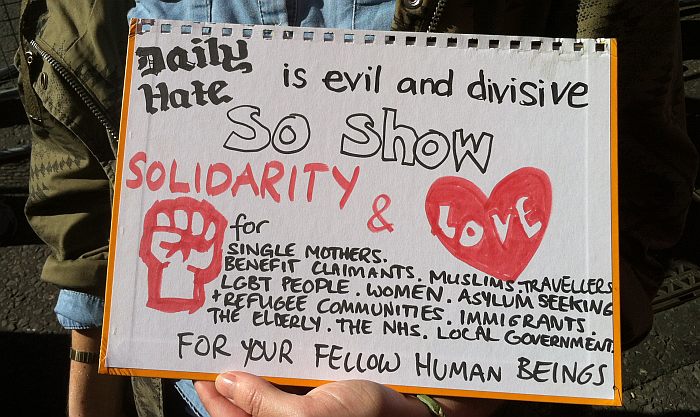 Daily
Hate
is evil and divisive
So Show
SOLIDARITY
& LOVE
for
SINGLE MOTHERS.
BENEFIT CLAIMANTS. MUSLIMS. TRAVELLERS
LGBT PEOPLE. WOMEN. ASYLUM SEEKING
+ REFUGEE COMMUNITIES. IMMIGRANTS.
THE ELDERLY. THE NHS. LOCAL GOVERNMENT.
FOR YOUR FELLOW HUMAN BEINGS